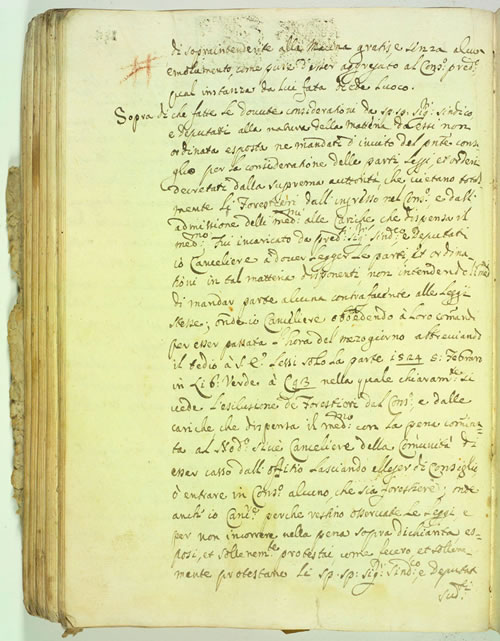 di sopraintendente alla Macina gratis e sinza alcun
emolumento, come pure d'esser aggregato al Cons:º pred:º
qual instanza da lui fata diede luoco.
Sopra di che fate le dovute consideraationi da sp: sp: Sig:ri Sindico
e Deputati alla natura della materia da essi non
ordinata esposta ne mandati d'invito del pnte consi
glio per la consideratione delle parti Leggi, et ordeni
decretati dalla suprema autorità, che vietano total
mente li Forestieri dall'ingresso nel Cons:º e dall'
admissione delli med:mi alle cariche che dispensa il
med:mo Fui incaricato da pred:ti Sig:ri Sind:co e Deputati
io Canceliere a dover legger le parti, et ordina
tioni in tal materia disponenti non intendendo
di mandar parte alcuna contrafaciente alle Leggi
stesse; onde io Canceliere obbedendo à loro comandi
per esser passata l'hora del mezogiorno abbreviando
il tedio à S. E. Lessi solo la parte 1524 8: Febraro
in Lib:º Verde à C. 93 nella quale chiaram:te si
vede l'esclusione de Forestieri dal Cons:º e dalle
cariche che dispensa il med:mo con la pena comina
ta al Nod:º sive Canceliere della Comunità di
esser casso dall'offitio lasciando elleger di Consiglio
ò entrare in Cons:º alcuno, che sia forestiere; onde
anch'io Canc:re perche restino osservate le Leggi e
per non incorrere nella pena sopra dichiarita es-
posi, et sollenem:te protestai come fecero, et sollene
mente protestano li sp: sp: Sig:ri Sind:co e Deputati